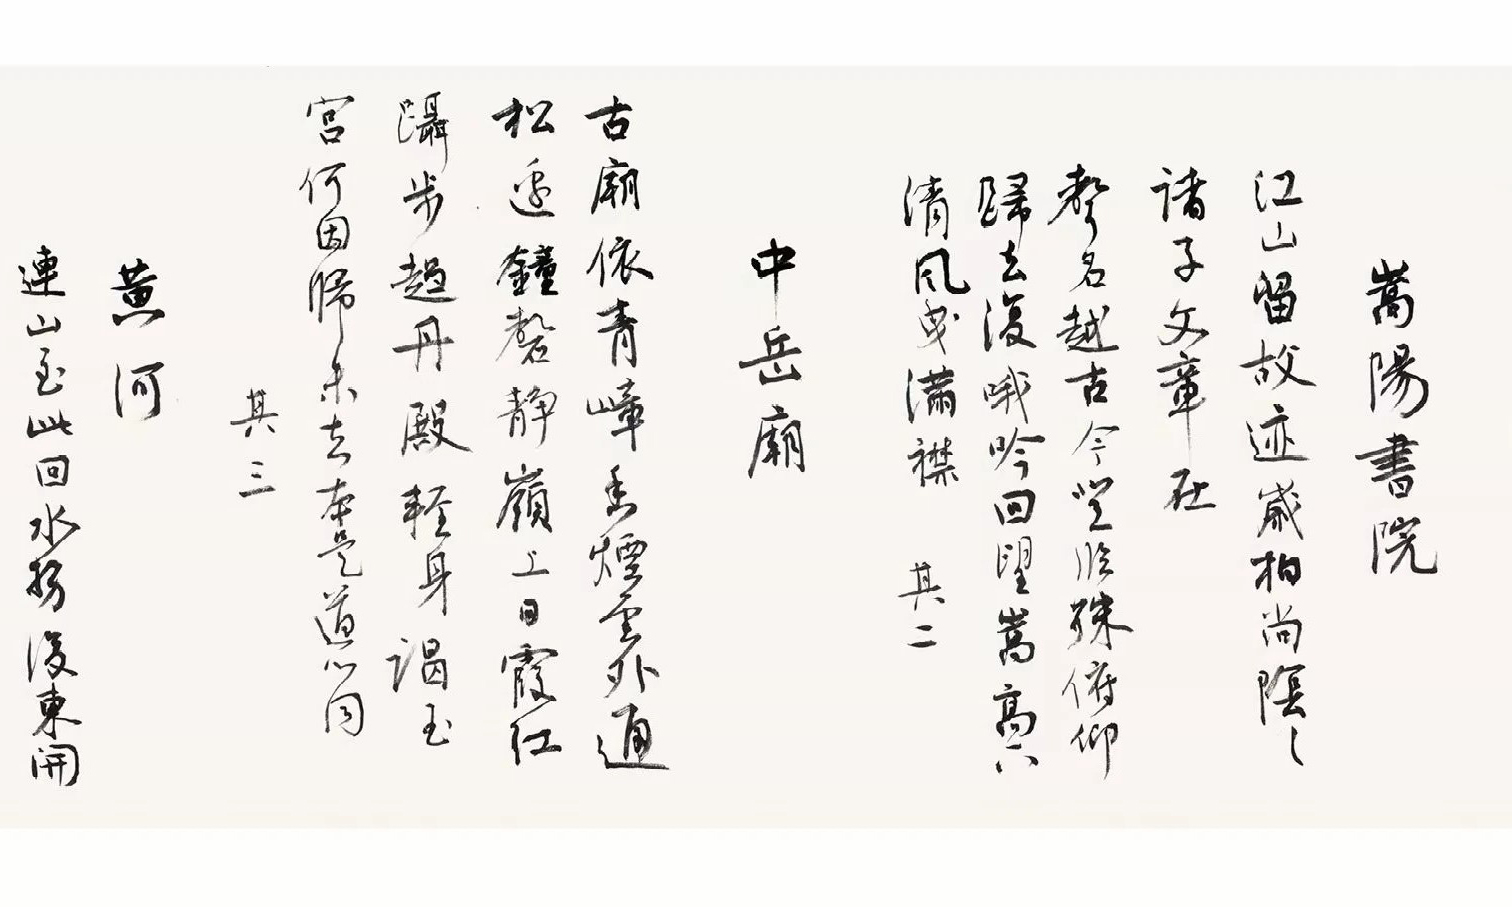 嵩陽書院
江山留故迹歲柏尚陰々
諸子文章在
聲名越古今登臨殊俯仰
歸去復哦吟回望嵩高下
清風曳滿襟 其二
中岳廟
古廟依青嶂香煙雲外通
松邊鐘磬静嶺上日霞红
躡步趨丹殿輕身謁玉
宮何因歸未去本是道心同
其三
黄河
連山至此回水势復東開